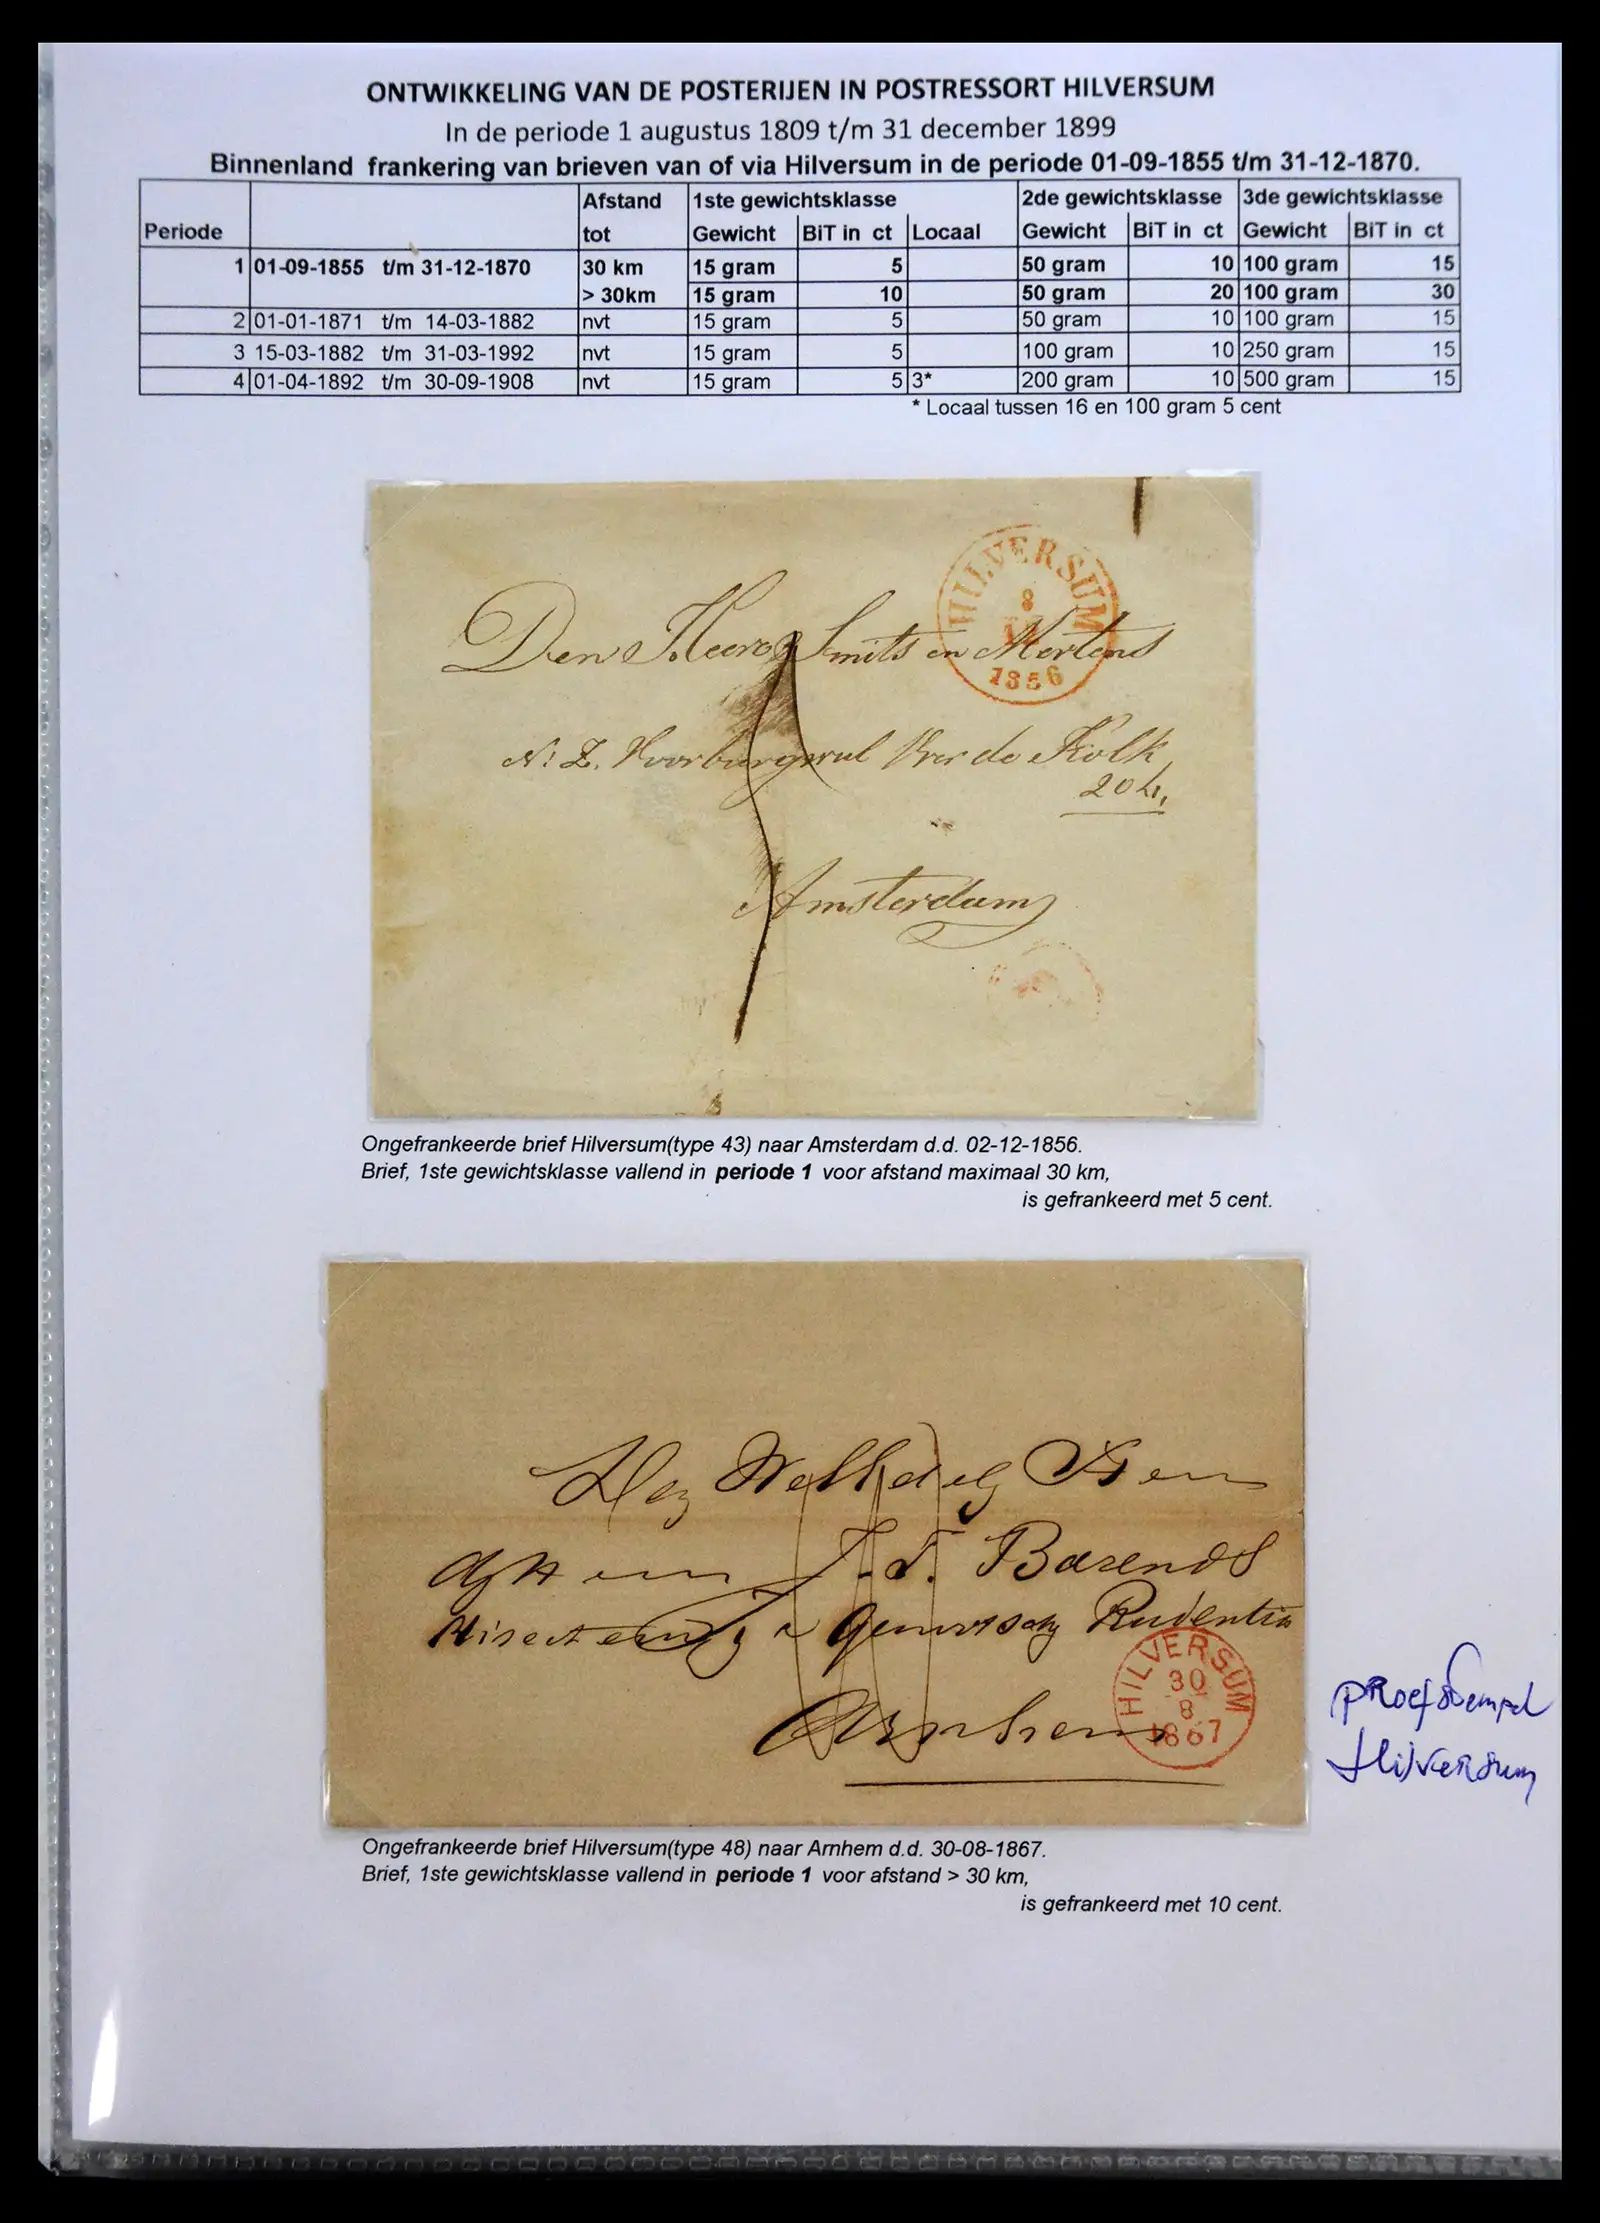 ONTWIKKELING VAN DE POSTERIJEN IN POSTRESSORT HILVERSUM
In de periode 1 augustus 1809 t/m 31 december 1899
Binnenland frankering van brieven van of via Hilversum in de periode 01-09-1855 t/m 31-12-1870.
Afstand 1ste gewichtsklasse 2de gewichtsklasse 3de gewichtsklasse
Periode tot Gewicht BiT in ct Locaal Gewicht BiT in ct Gewicht BiT in ct
1 01-09-1855 t/m 31-12-1870 30 km 15 gram 5 50 gram 10 100 gram 15
> 30km 15 gram 10 50 gram 20 100 gram 30
2 01-01-1871 t/m 14-03-1882 nvt 15 gram 5 50 gram 10 100 gram 15
3 15-03-1882 t/m 31-03-1992 nvt 15 gram 5 100 gram 10 250 gram 15
4 01-04-1892 t/m 30-09-1908 nvt 15 gram 5 3* 200 gram 10 500 gram 15
* Locaal tussen 16 en 100 gram 5 cent
HILVERSUM
8
1856
Den Heeren Smits en Mertens
N: Z. Voorburgwal Over de Kolk
Amsterdam
Ongefrankeerde brief Hilversum(type 43) naar Amsterdam d.d. 02-12-1856.
Brief, 1ste gewichtsklasse vallend in periode 1 voor afstand maximaal 30 km,
is gefrankeerd met 5 cent.
Heer
J. F. Barends
Prudentia
Arnhem
HILVERSUM
30
8
1867
proefstempel
Hilversum
Ongefrankeerde brief Hilversum(type 48) naar Arnhem d.d. 30-08-1867.
Brief, 1ste gewichtsklasse vallend in periode 1 voor afstand > 30 km,
is gefrankeerd met 10 cent.